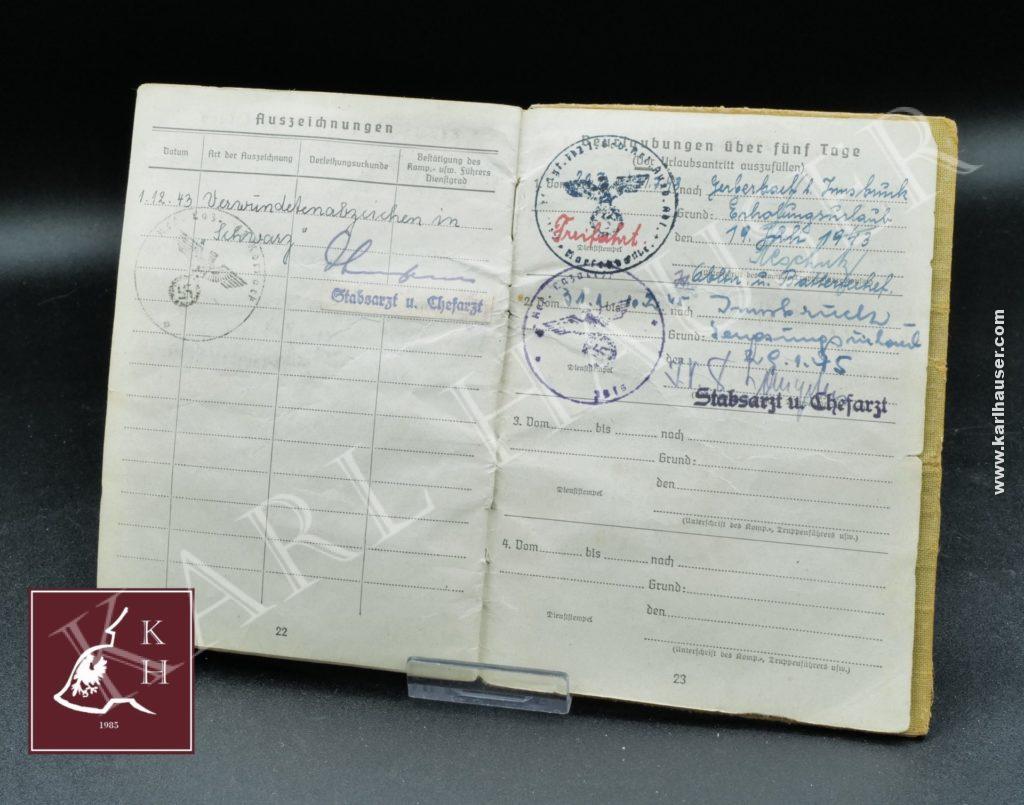 Auszeichnungen
Datum
Art der Auszeichnung
Verleihungsurkunde
Bestätigung des Komp.- usw. Führers Dienstgrad
1.12.43 Verwundetenabzeichen in
Schwarz"
Stabsarzt u. Chefarzt
22
Beurlaubungen über fünf Tage
(Vor Urlaubsantritt auszufüllen)
1. Vom nach Innsbruck
Grund: Erholungsurlaub
Freifahrt
den 19. 1943
Dienststempel
u. Batteriechef
2. Vom 31.1. bis nach Innsbruck
Grund: Genesungsurlaub
den 29.1.45
Dienststempel
Stabsarzt u. Chefarzt
3. Vom bis nach
Grund:
den
Dienststempel
(Unterschrift des Komp.-, Truppenführers usw.)
4. Vom bis nach
Grund:
den
Dienststempel
(Unterschrift des Komp.-, Truppenführers usw.)
23
KARL HAUSER
www.karlhauser.com
K
H
1985